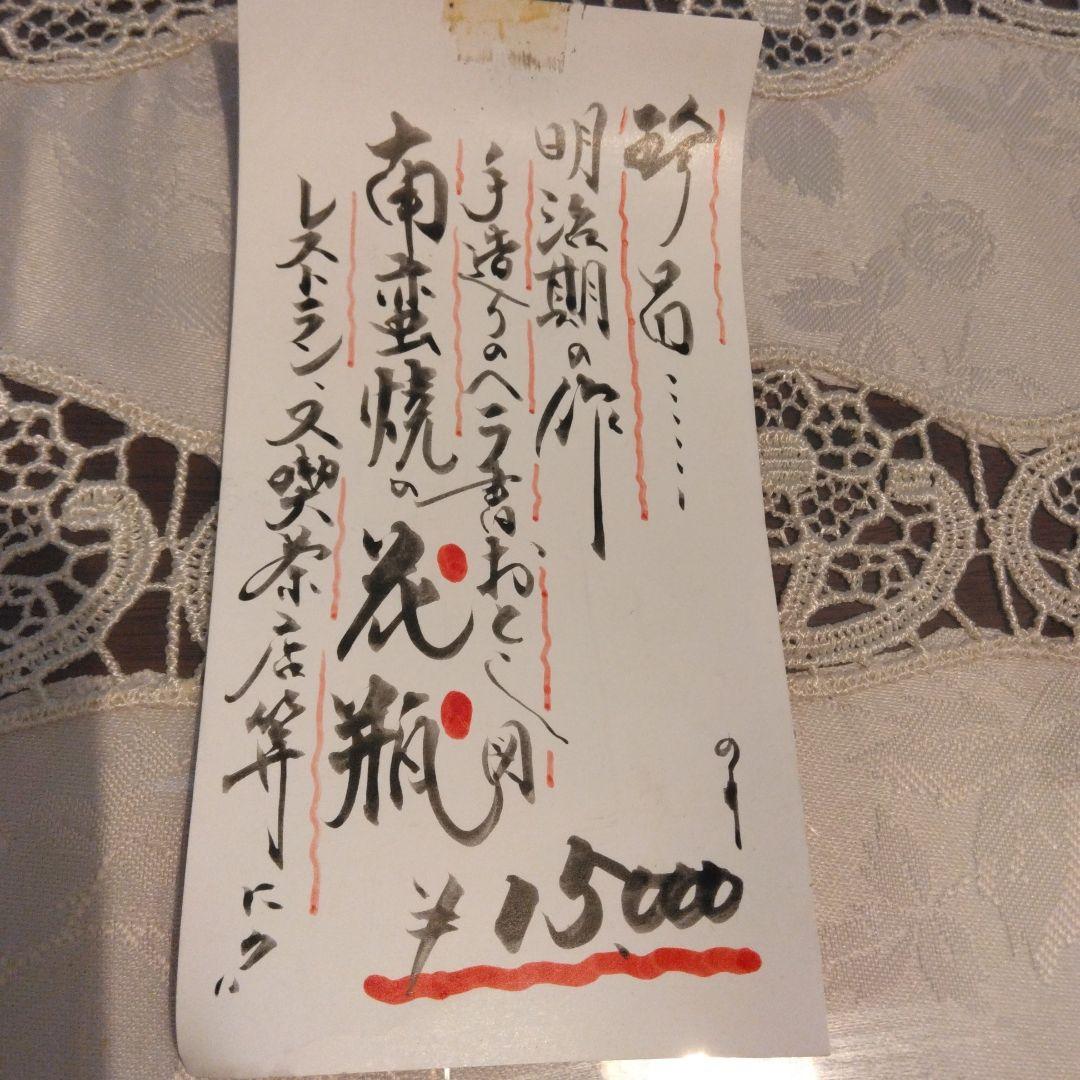 珍品……
明治期の作
手造りのヘラ書おとし図
南蛮焼の花瓶
レストラン、又喫茶店等に
¥15,000